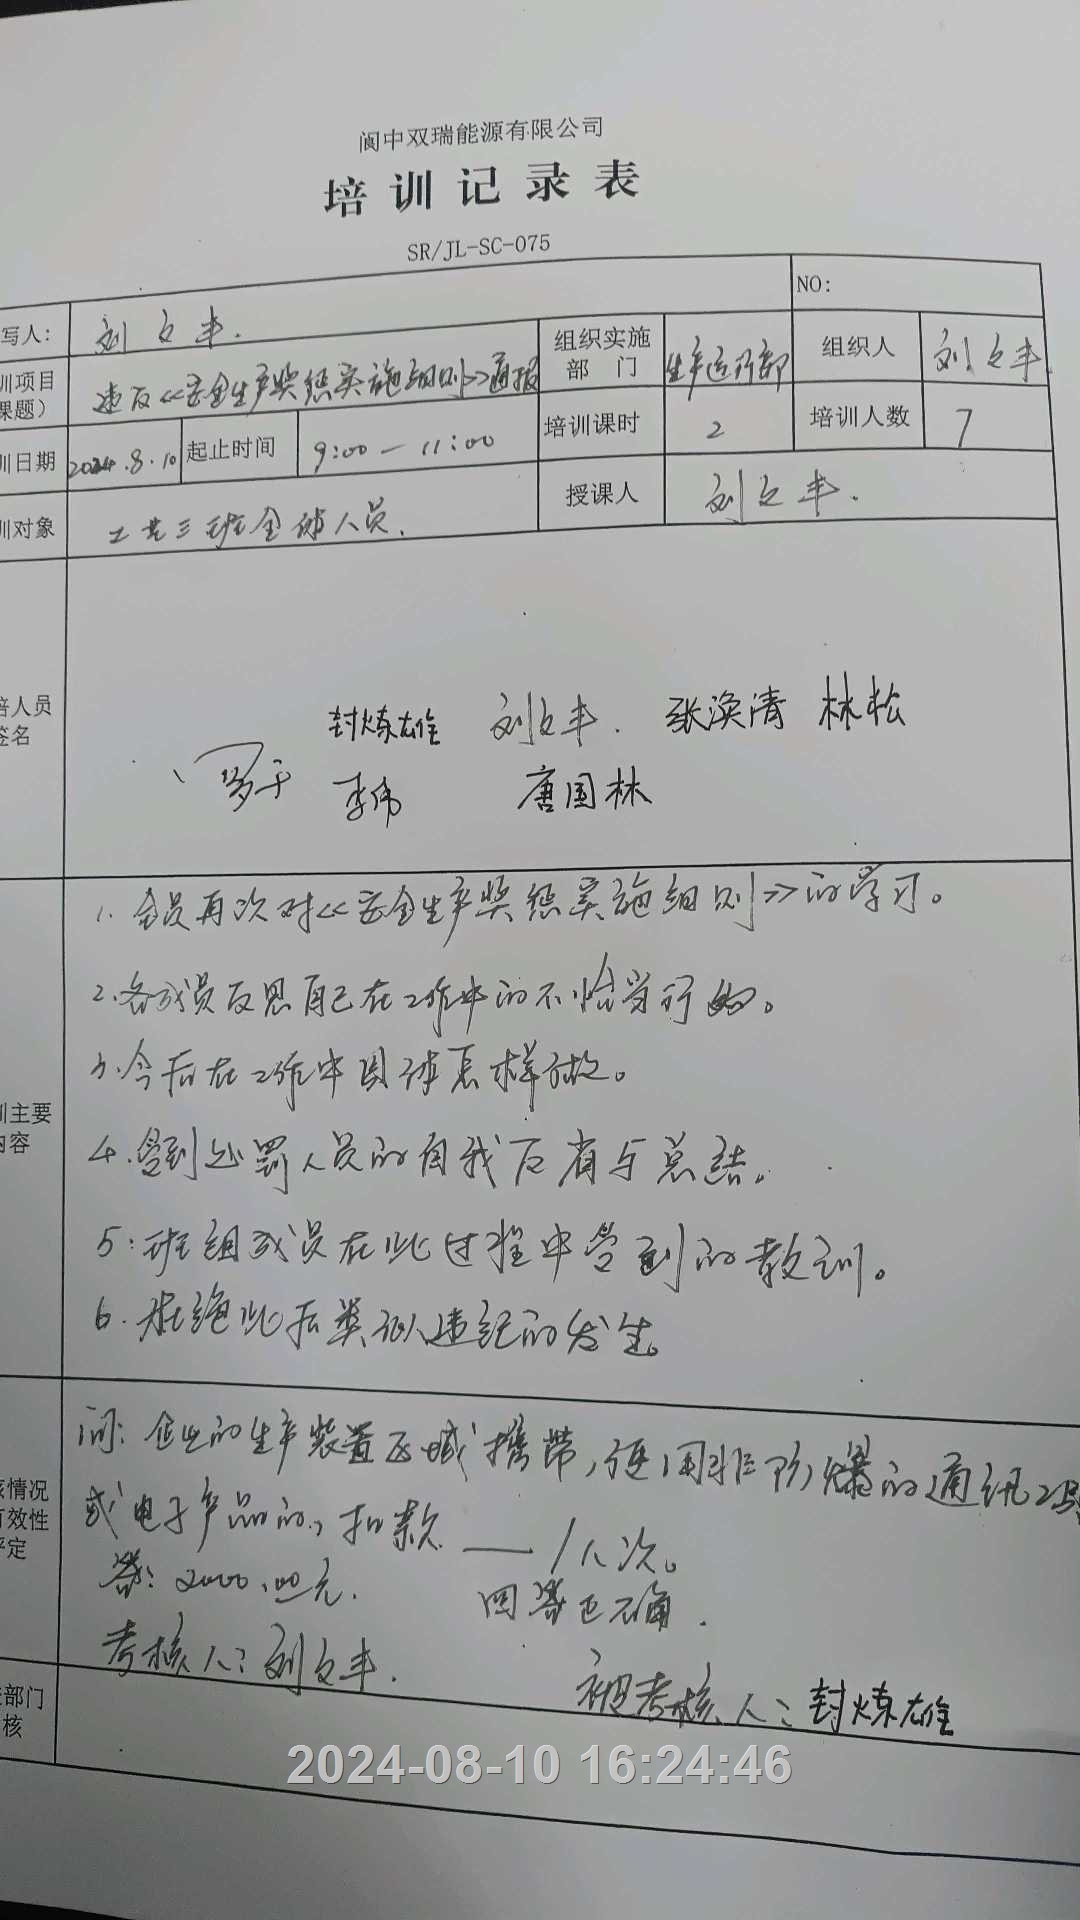 阆中双瑞能源有限公司
培训记录表
SR/JL-SC-075
NO:
写人: 刘文丰.
训项目 课题) 违反《安全生产奖惩实施细则》通报 组织实施部门 生产运行部 组织人 刘文丰.
训日期 2024.8.10 起止时间 9:00—11:00 培训课时 2 培训人数 7
训对象 工艺三班全体人员. 授课人 刘文丰.
培人员
签名
封炼雄 刘文丰. 张焕清 林松
罗千 李伟 唐国林
训主要
内容
1. 全员再次对《安全生产奖惩实施细则》的学习。
2.各成员反思自己在工作中的不恰当行为。
3.今后在工作中具体怎样做。
4.受到处罚人员的自我反省与总结。
5.班组成员在此过程中受到的教训。
6.杜绝此后类似违纪的发生。
核情况
有效性
评定
问:企业的生产装置区域携带,使用非防爆的通讯工具
或电子产品的,扣款 ——/人次。
答:2000.00元.
回答正确.
考核人:刘文丰.
被考核人:封炼雄
部门
核
2024-08-10 16:24:46